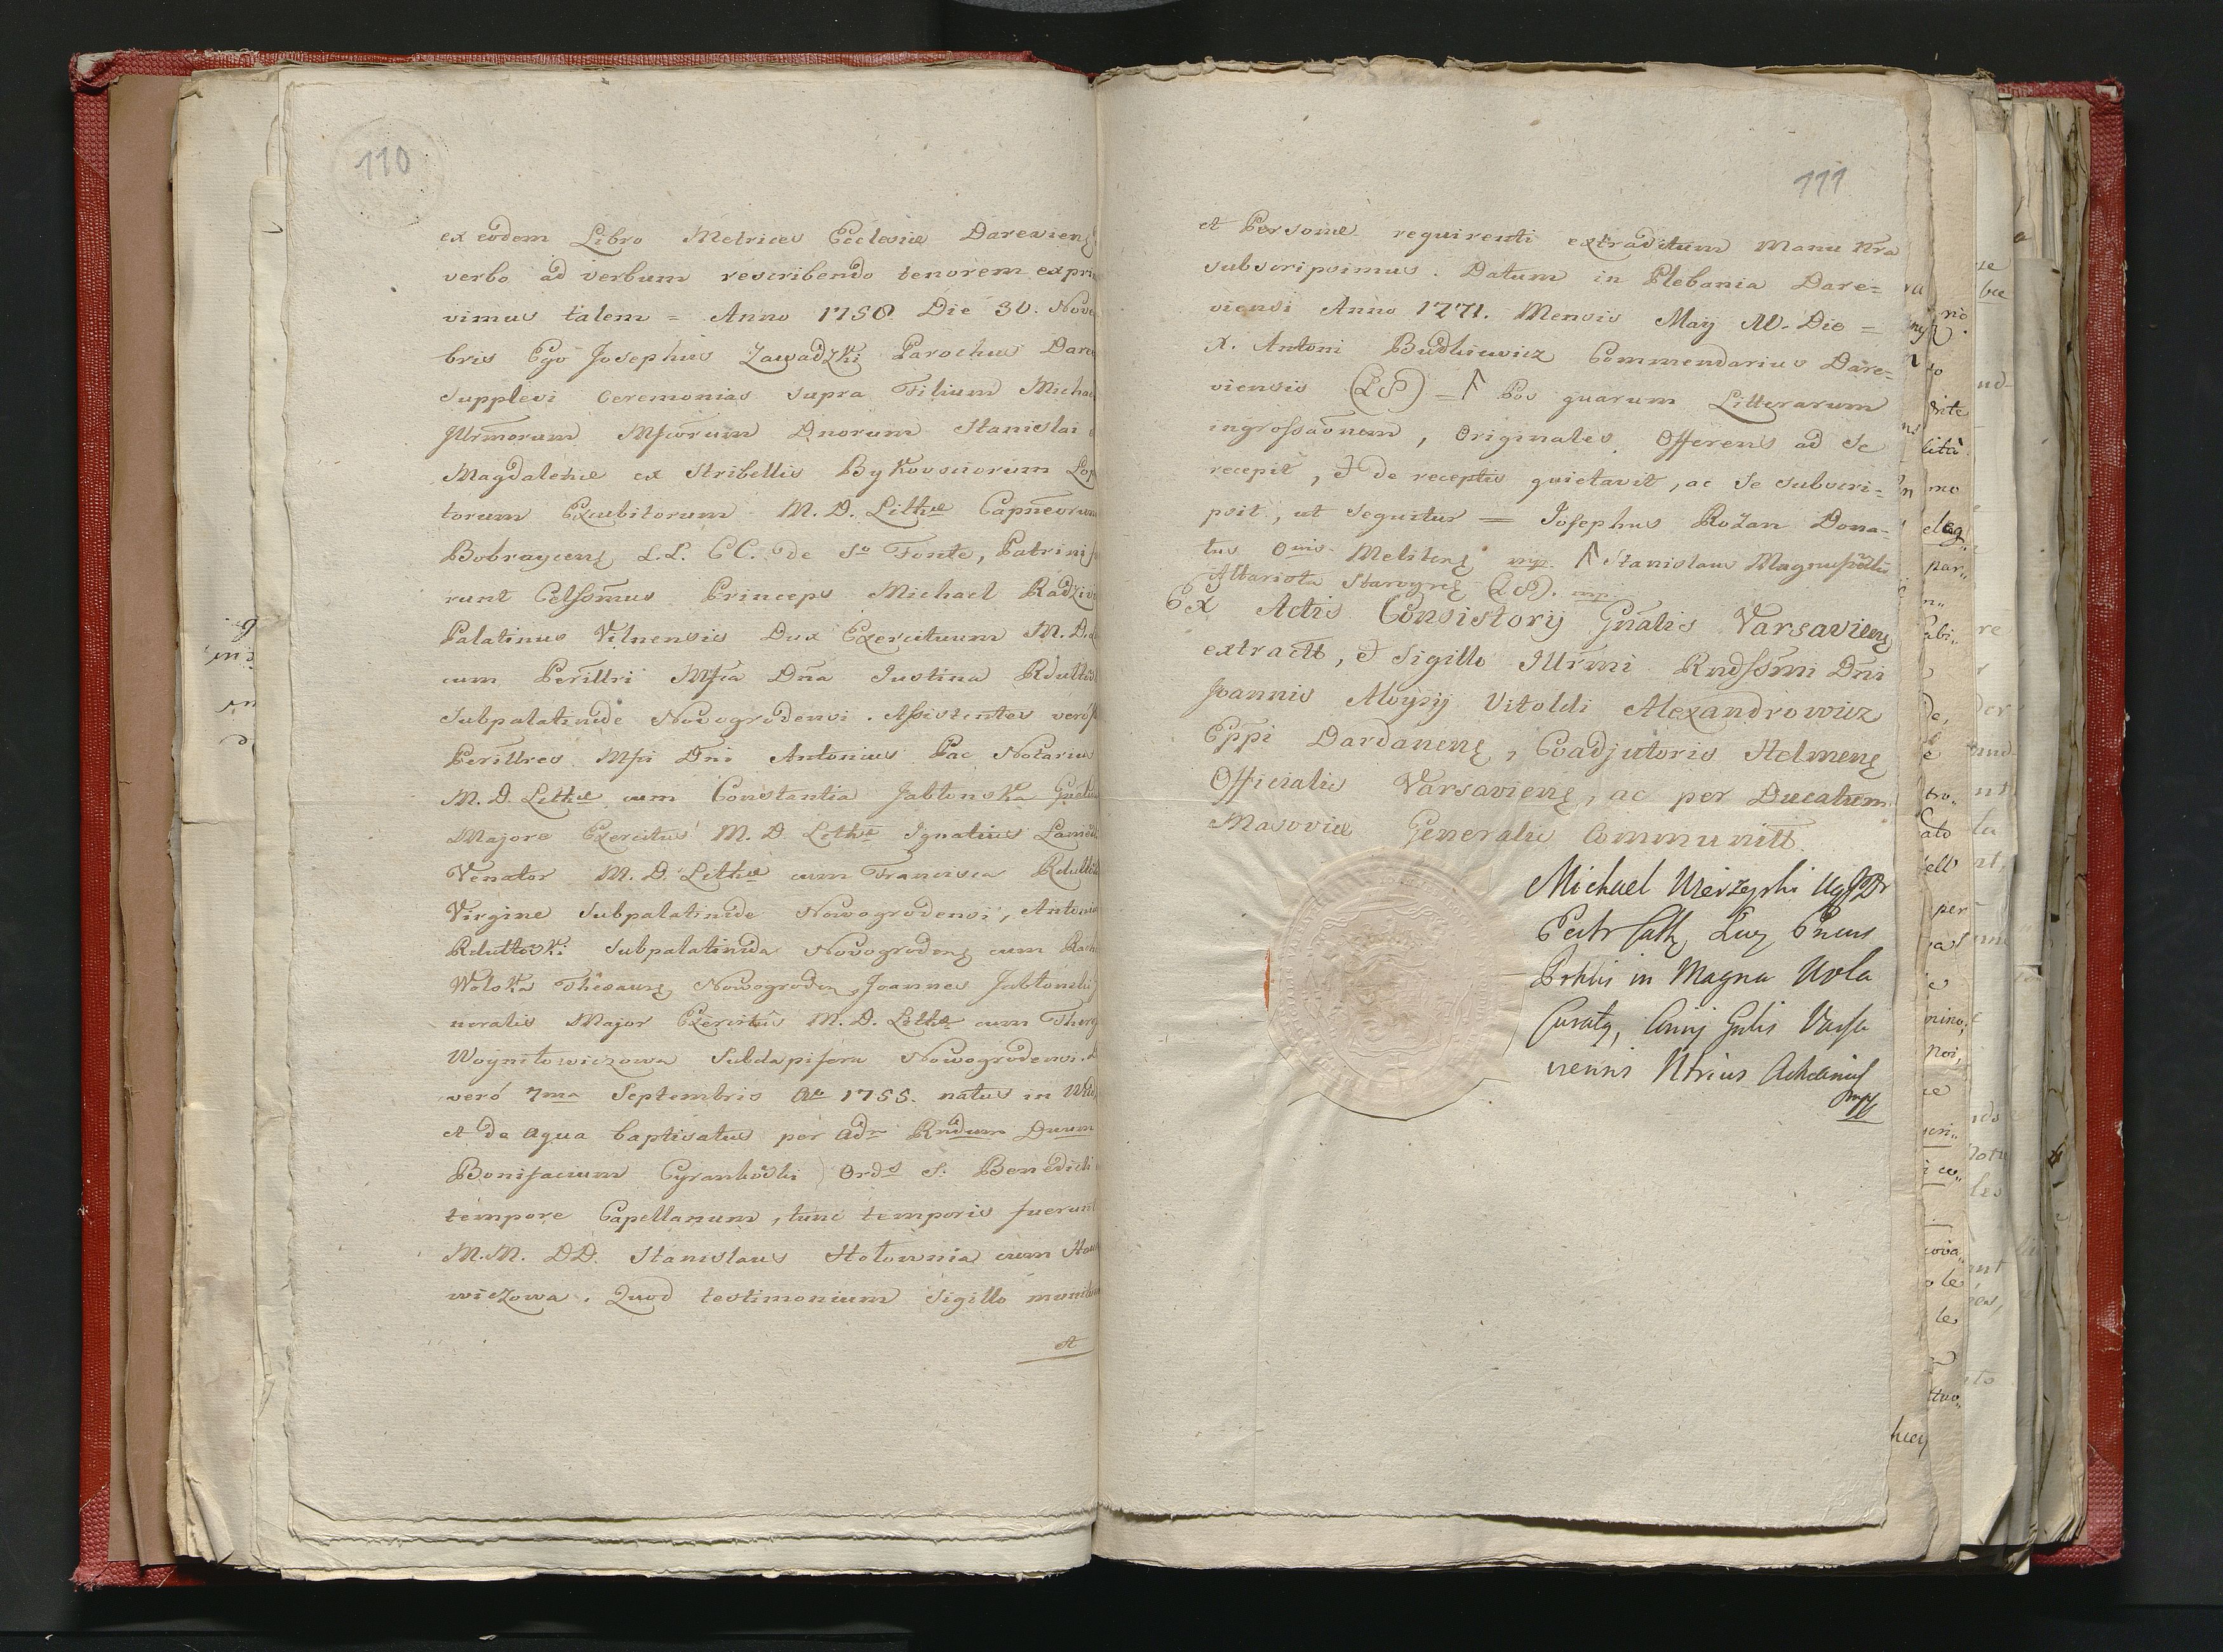 110
ex eodem Libro Metrices Ecclesiæ Dareviens
verbo ad verbum rescribendo tenorem expri
vimus talem = Anno 1758 Die 30. Nove
bris Ego Josephus Zawadzki Parochus Dare
supplevi ceremonias supra Filium Michae
Illrmorum Mfcorum Dnorum Stanislai
Magdalenæ ex Stribellis Bykovsciorum
torum Excubitorum M. D. Lithæ Capneorum
L.L. CC. de So Fonte, Patrini
runt Celssmus Princeps Michael Radzivi
Palatinus Vilnensis Dux Exercituum M. D.
cum Perillri Mfca Dna Justina Rdultow
Subpalatinide Novogrodensi. Assistentes vero
Perillres Mfci Dni Antonius Pac Notarius
M. D. Lithæ cum Constantia Jablonska
Majore Exercitus M. D. Lithæ Ignatius
Venator M. D. Lithæ cum Francisca Rdulto
Virgine Subpalatinide Nowogrodensi, Antoni
Rdultoski Subpalatinida Novogrodens cum
Wolska Thesaur Nowogroden Joannes Jablonski
neralis Major Exercitus M. D. Lithæ cum
Woyniłowiczowa Subdapifera Nowogrodensi.
veró 7ma Septembris Ao 1755. natus in
et de aqua baptisatus per adr Rndum Dnum
Bonifacium Ords S. Benedicti
tempore Capellanum, tunc temporis fuerunt
M.M. DD. Stanislaus Hołownia cum
wiczowa. Quod testimonium Sigillo munitum
et
111
et Personæ requirenti extraditum Manu nra
subscripsimus. Datum in Plebania Dare=
viensi Anno 1771. Mensis Maij 10. Die =
X. Antoni Budkiewicz Commendarius Dare=
viensis (LS) = Pos quarum Litterarum
ingrossaonem, Originales Offerens ad Se
recepit, & de receptis quietavit, ac Se subscri=
psit, ut sequitur = Josephus Rożan Dona=
tus Melitens mp. Stanislaus
Altarista (LS). mp.
Ex Actis Consistorij Gnalis Varsaviens
extract, & Sigillo Illrmi Rndssmi Dni
Joannis Aloysij Vitoldi Alexandrowicz
Eppi Dardanens, Coadjutoris Helmens
Officialis Varsaviens, ac per Ducatum
Masoviæ Generalis Communitt.
Michael
in Magna Wola
Curatq, Varsa
viensis Ntrius
mp